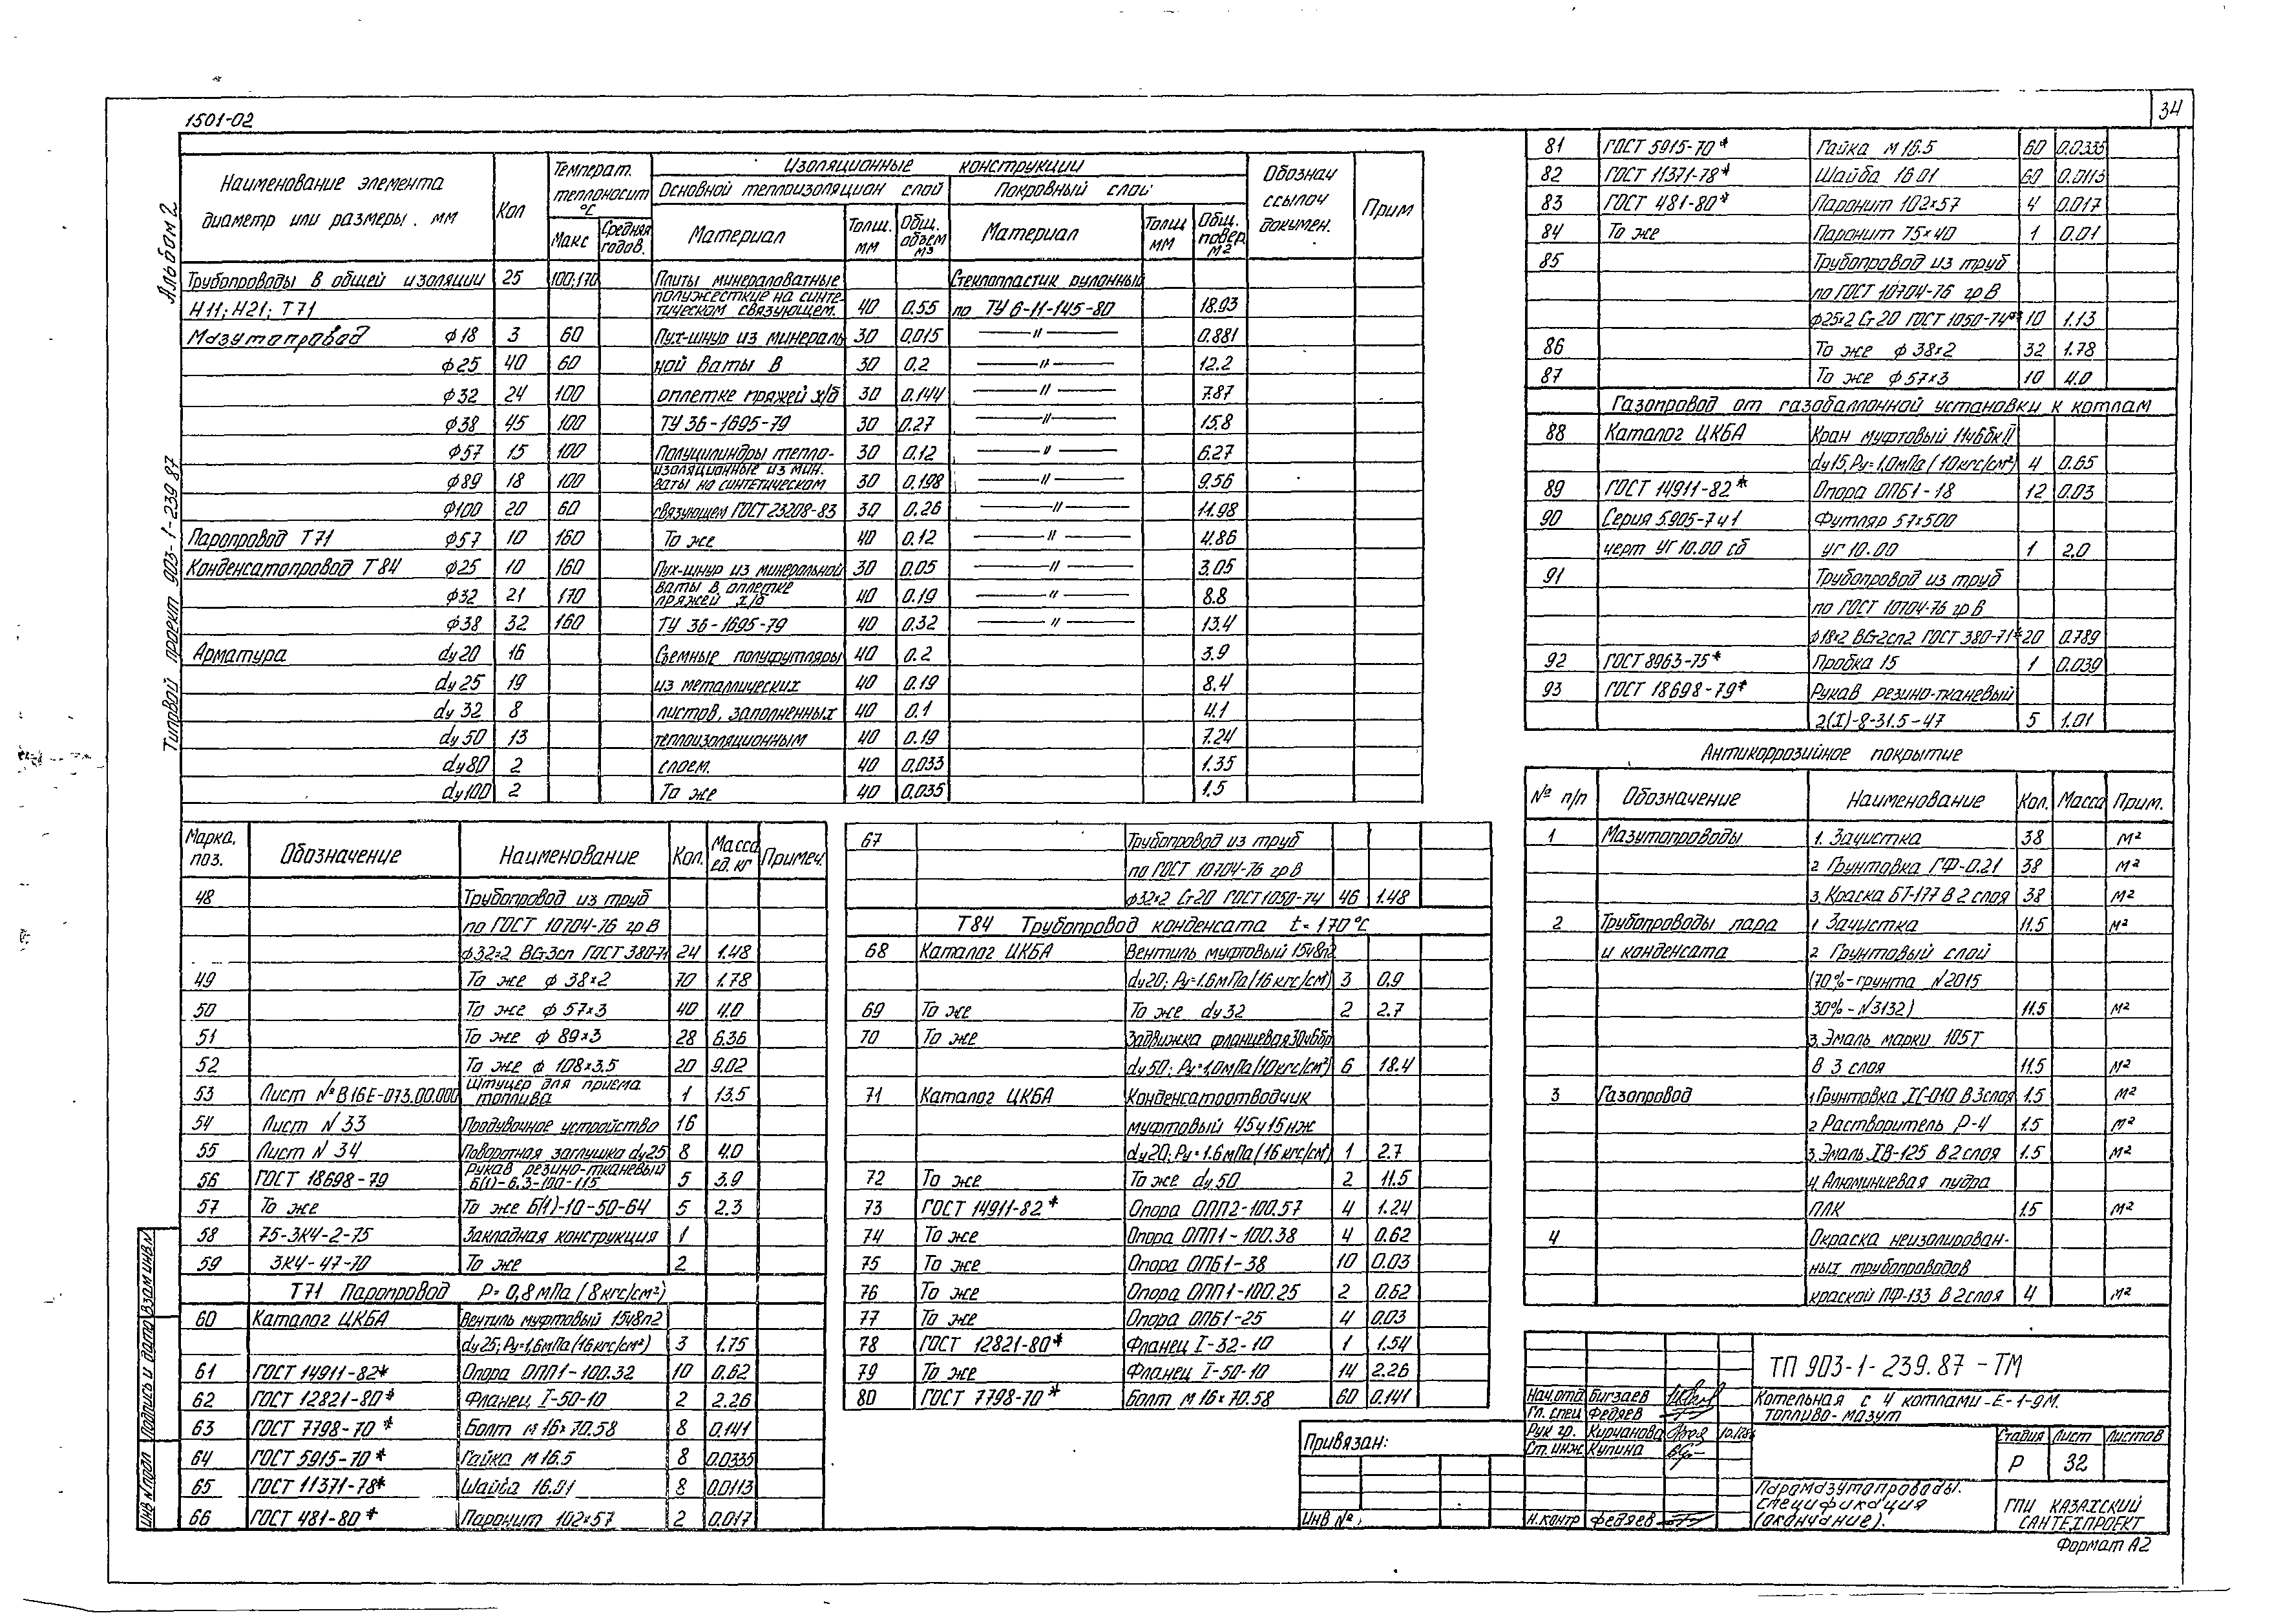 34
1501-02
Альбом 2
Типовой проект 903-1-239 87
Наименование элемента диаметр или размеры. мм | Кол | Температ. теплоносит °С | Изоляционные конструкции | Обознач ссылоч докумен. | Прим
Основной теплоизоляцион слой | Покровный слой
Макс | Средняя годов. | Материал | Толщ. мм | Общ. объем м3 | Материал | Толщ мм | Общ. повер. м2
Трубопроводы в общей изоляции 25 100;170 Плиты минераловатные Стеклопластик рулонный
Н11; Н21; Т71 полужесткие на синтетическом связующем. 40 0.55 по ТУ 6-11-145-80 18.93
Мазутопровод ф18 3 60 Пух-шнур из минераль 30 0.015 —〃— 0.881
ф25 40 60 ной ваты в 30 0.2 —〃— 12.2
ф32 24 100 оплетке пряжей х/б 30 0.144 —〃— 7.87
ф38 45 100 ТУ 36-1695-79 30 0.27 —〃— 15.8
ф57 15 100 Полуцилиндры тепло- 30 0.12 —〃— 6.27
ф89 18 100 изоляционные из мин. ваты на синтетическом 30 0.198 —〃— 9.56
ф100 20 60 связующем ГОСТ 23208-83 30 0.26 —〃— 11.98
Паропровод Т71 ф57 10 160 То же 40 0.12 —〃— 4.86
Конденсатопровод Т84 ф25 10 160 Пух-шнур из минеральной 30 0.05 —〃— 3.05
ф32 21 170 ваты в оплетке пряжей х/б 40 0.19 —〃— 8.8
ф38 32 160 ТУ 36-1695-79 40 0.32 —〃— 13.4
Арматура dу20 16 Съемные полуфутляры 40 0.2 3.9
dу25 19 из металлических 40 0.19 8.4
dу 32 8 листов, заполненных 40 0.1 4.1
dу50 13 теплоизоляционным 40 0.19 7.24
dу80 2 слоем. 40 0.033 1.35
dу100 2 То же 40 0.035 1.5
Марка, поз. | Обозначение | Наименование | Кол. | Масса ед. кг | Примеч.
48 Трубопровод из труб
по ГОСТ 10704-76 гр В
ф32×2 ВСт3сп ГОСТ 380-71 24 1.48
49 То же ф 38×2 70 1.78
50 То же ф 57×3 40 4.0
51 То же ф 89×3 28 6.36
52 То же ф 108×3.5 20 9.02
53 Лист № В16Е-073.00.000 Штуцер для приема топлива 1 13.5
54 Лист N 33 Продувочное устройство 16
55 Лист N 34 Поворотная заглушка dу25 8 4.0
56 ГОСТ 18698-79 Рукав резино-тканевый Б(I)-6.3-100-115 5 3.9
57 То же То же Б(I)-10-50-64 5 2.3
58 75-ЗК4-2-75 Закладная конструкция 1
59 ЗК4-47-70 То же 2
Т71 Паропровод Р= 0,8 мПа (8 кгс/см²)
60 Каталог ЦКБА Вентиль муфтовый 15ч8п2
dу25; Ру=1,6мПа(16кгс/см²) 3 1.75
61 ГОСТ 14911-82* Опора ОПП1-100.32 10 0.62
62 ГОСТ 12821-80* Фланец I-50-10 2 2.26
63 ГОСТ 7798-70 * Болт м 16×70.58 8 0.141
64 ГОСТ 5915-70 * Гайка М 16.5 8 0.0335
65 ГОСТ 11371-78* Шайба 16.01 8 0.0113
66 ГОСТ 481-80 * Паронит 102×57 2 0.017
67 Трубопровод из труб
по ГОСТ 10704-76 гр В
ф32×2 Ст20 ГОСТ 1050-74 46 1.48
Т84 Трубопровод конденсата t= 170°С
68 Каталог ЦКБА Вентиль муфтовый 15ч8п2
dу20; Ру=1.6мПа(16кгс/см²) 3 0.9
69 То же То же dу32 2 2.7
70 То же Задвижка фланцевая 30ч6бр
dу50; Ру=1,0мПа(10кгс/см²) 6 18.4
71 Каталог ЦКБА Конденсатоотводчик
муфтовый 45ч15нж
dу20; Ру=1.6мПа(16кгс/см²) 1 2.7
72 То же То же dу50 2 11.5
73 ГОСТ 14911-82 * Опора ОПП2-100.57 4 1.24
74 То же Опора ОПП1-100.38 4 0.62
75 То же Опора ОПБ1-38 10 0.03
76 То же Опора ОПП1-100.25 2 0.62
77 То же Опора ОПБ1-25 4 0.03
78 ГОСТ 12821-80* Фланец I-32-10 1 1.54
79 То же Фланец I-50-10 14 2.26
80 ГОСТ 7798-70 * Болт м 16×70.58 60 0.141
81 ГОСТ 5915-70 * Гайка М 16.5 60 0.0335
82 ГОСТ 11371-78* Шайба 16 01 60 0.0113
83 ГОСТ 481-80* Паронит 102×57 4 0.017
84 То же Паронит 75×40 1 0.01
85 Трубопровод из труб
по ГОСТ 10704-76 гр В
ф25×2 Ст20 ГОСТ 1050-74** 10 1.13
86 То же ф 38×2 32 1.78
87 То же ф 57×3 10 4.0
Газопровод от газобаллонной установки к котлам
88 Каталог ЦКБА Кран муфтовый 11ч6бкII
dу15, Ру=1,0мПа(10кгс/см²) 4 0.65
89 ГОСТ 14911-82 * Опора ОПБ1-18 12 0.03
90 Серия 5.905-7 ч 1 Футляр 57×500
черт УГ 10.00 сб УГ 10.00 1 2.0
91 Трубопровод из труб
по ГОСТ 10704-76 гр В
ф18×2 ВСт2сп2 ГОСТ 380-71* 20 0.789
92 ГОСТ 8963-75* Пробка 15 1 0.039
93 ГОСТ 18698-79* Рукав резино-тканевый
2(I)-8-31.5-47 5 1.01
Антикоррозийное покрытие
№ п/п | Обозначение | Наименование | Кол. | Масса | Прим.
1 Мазутопроводы 1. Зачистка 38 м²
2 Грунтовка ГФ-0.21 38 м²
3. Краска БТ-177 в 2 слоя 38 м²
2 Трубопроводы пара 1 Зачистка 11.5 м²
и конденсата 2 Грунтовый слой
(70%-грунта N2015
30%-N3132) 11.5 м²
3. Эмаль марки 105Т
в 3 слоя 11.5 м²
3 Газопровод 1 Грунтовка ХС-010 в 3слоя 1.5 м²
2 Растворитель Р-4 1.5 м²
3. Эмаль ХВ-125 в 2 слоя 1.5 м²
4. Алюминиевая пудра
ПАК 1.5 м²
4 Окраска неизолирован-
ных трубопроводов
краской ПФ-133 в 2слоя 4 м²
Привязан:
Инв №:
Нач.отд Бигзаев
Гл. спец Федяев
Рук гр. Кирчанова
Ст. инж Купина
Н.контр Федяев
ТП 903-1-239.87 -ТМ
Котельная с 4 котлами -Е-1-9М.
Топливо-мазут
Стадия | Лист | Листов
Р | 32
Паромазутопроводы.
Спецификация
(окончание).
ГПИ КАЗАХСКИЙ
САНТЕХПРОЕКТ
Формат А2
Инв N подл
Подпись и дата
Взам инв N